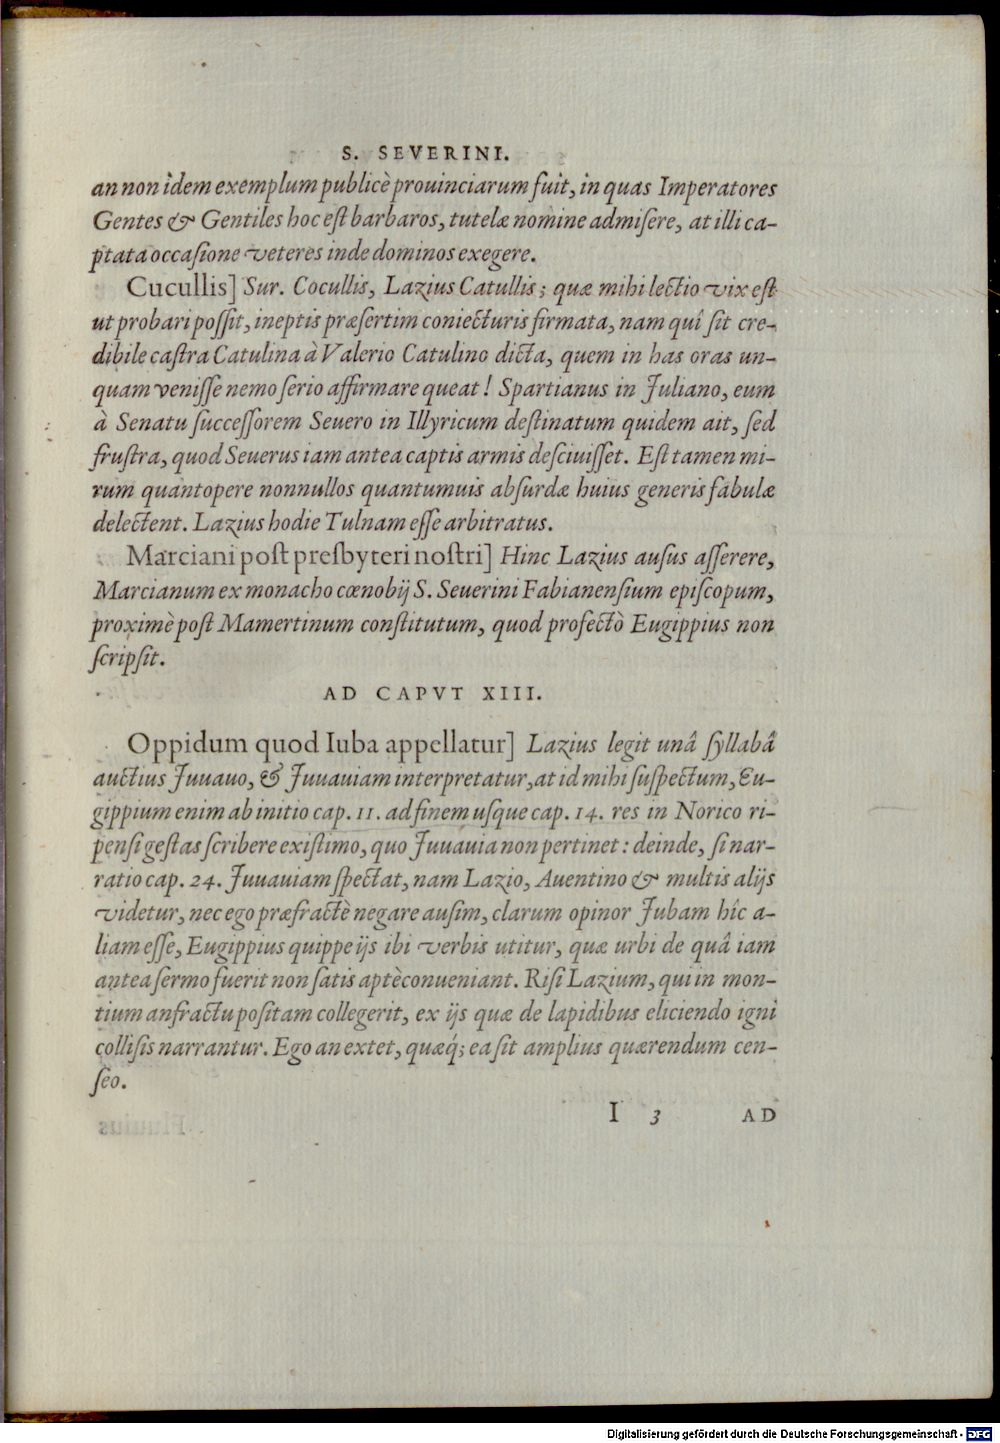 S. SEVERINI.
an non idem exemplum publicè prouinciarum fuit, in quas Imperatores
Gentes & Gentiles hoc est barbaros, tutelæ nomine admisere, at illi ca-
ptata occasione veteres inde dominos exegere.
Cucullis] Sur. Cocullis, Lazius Catullis; quæ mihi lectio vix est
ut probari possit, ineptis præsertim coniecturis firmata, nam quî sit cre-
dibile castra Catulina à Valerio Catulino dicta, quem in has oras un-
quam venisse nemo serio affirmare queat! Spartianus in Juliano, eum
à Senatu successorem Seuero in Illyricum destinatum quidem ait, sed
frustra, quod Seuerus iam antea captis armis desciuisset. Est tamen mi-
rum quantopere nonnullos quantumuis absurdæ huius generis fabulæ
delectent. Lazius hodie Tulnam esse arbitratus.
Marciani post presbyteri nostri] Hinc Lazius ausus asserere,
Marcianum ex monacho cœnobij S. Seuerini Fabianensium episcopum,
proximè post Mamertinum constitutum, quod profectò Eugippius non
scripsit.
AD CAPVT XIII.
Oppidum quod Iuba appellatur] Lazius legit unâ syllabâ
auctius Juuauo, & Juuauiam interpretatur, at id mihi suspectum, Eu-
gippium enim ab initio cap. 11. ad finem usque cap. 14. res in Norico ri-
pensi gestas scribere existimo, quo Juuauia non pertinet: deinde, si nar-
ratio cap. 24. Juuauiam spectat, nam Lazio, Auentino & multis alijs
videtur, nec ego præfractè negare ausim, clarum opinor Jubam hîc a-
liam esse, Eugippius quippe ijs ibi verbis utitur, quæ urbi de quâ iam
antea sermo fuerit non satis aptè conueniant. Risi Lazium, qui in mon-
tium anfractu positam collegerit, ex ijs quæ de lapidibus eliciendo igni
collisis narrantur. Ego an extet, quæq́; ea sit amplius quærendum cen-
seo.
I 3 AD
Digitalisierung gefördert durch die Deutsche Forschungsgemeinschaft - DFG